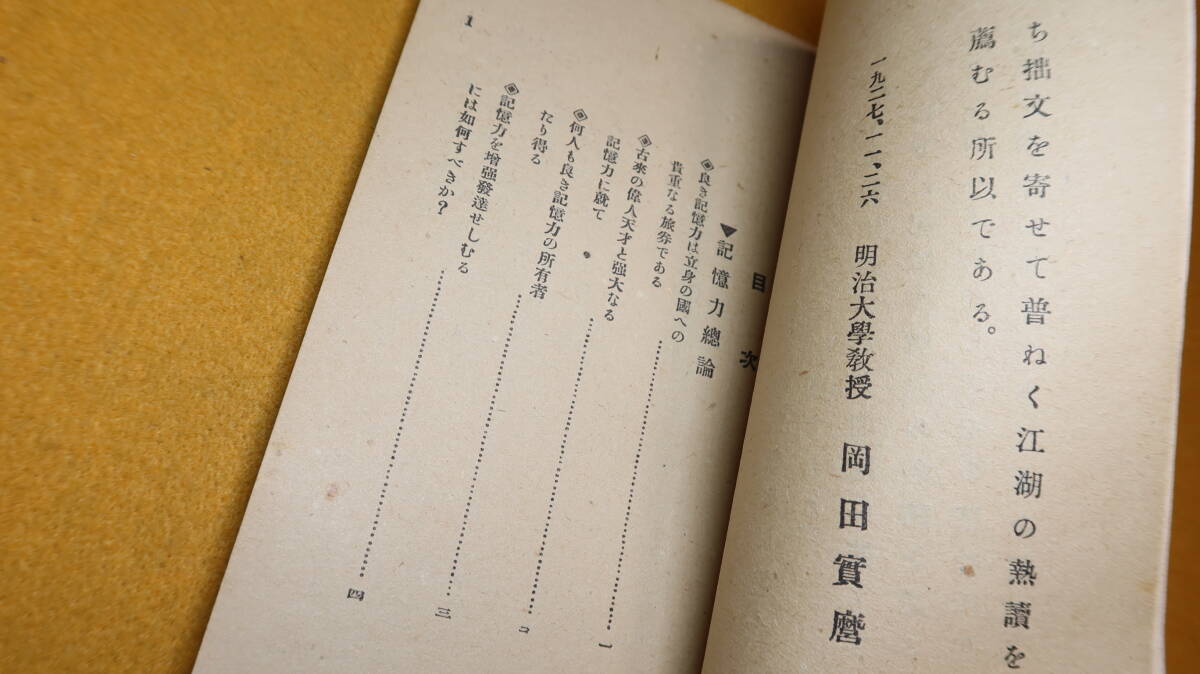 ち拙文を寄せて普ねく江湖の熱讀を
薦むる所以である。
一九二七、一一、二六 明治大學敎授 岡田實麿
目次
▼記憶力總論
◈良き記憶力は立身の國への
貴重なる旅券である…………一
◈古來の偉人天才と强大なる
記憶力に就て…………二
◈何人も良き記憶力の所有者
たり得る…………三
◈記憶力を增强發達せしむる
には如何すべきか?…………四
1